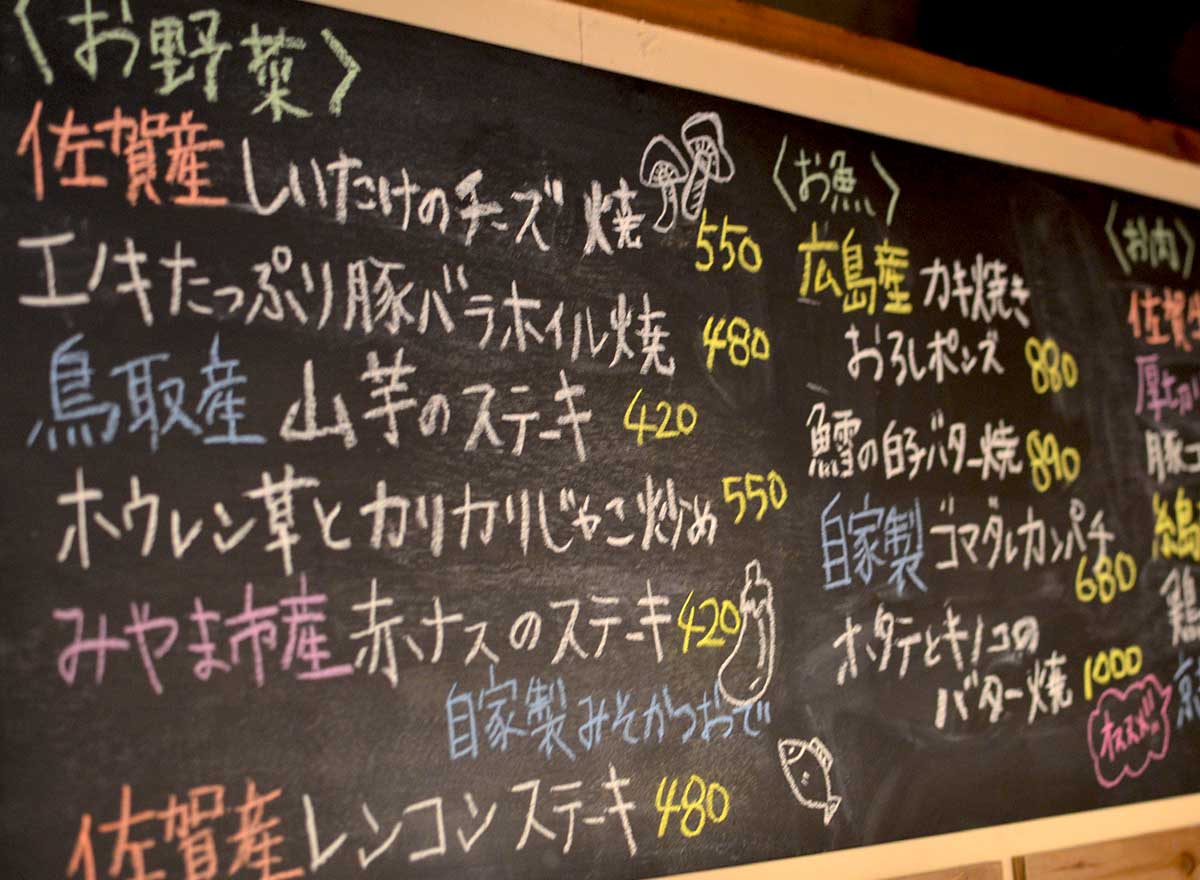 〈お野菜〉
佐賀産 しいたけのチーズ焼 550
エノキたっぷり豚バラホイル焼 480
鳥取産 山芋のステーキ 420
ホウレン草とカリカリじゃこ炒め 550
みやま市産 赤ナスのステーキ 420
自家製みそかつおで
佐賀産 レンコンステーキ 480
〈お魚〉
広島産 カキ焼き
おろしポンズ 880
鱈の白子バター焼 890
自家製 ゴマダレカンパチ
680
ホタテとキノコの
バター焼 1000
オススメ!!
〈お肉〉
佐賀
厚切
豚
糸島
鶏